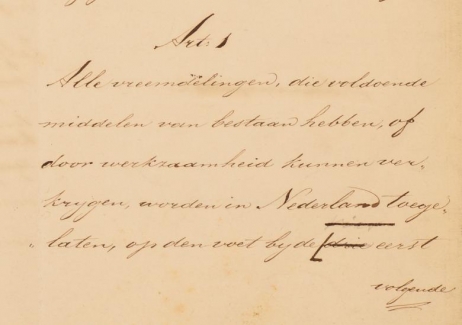 Art: 1
Alle vreemdelingen, die voldoende
middelen van bestaan hebben, of
door werkzaamheid kunnen ver-
krygen, worden in Nederland toege-
laten, op den voet by de drie eerst
volgende